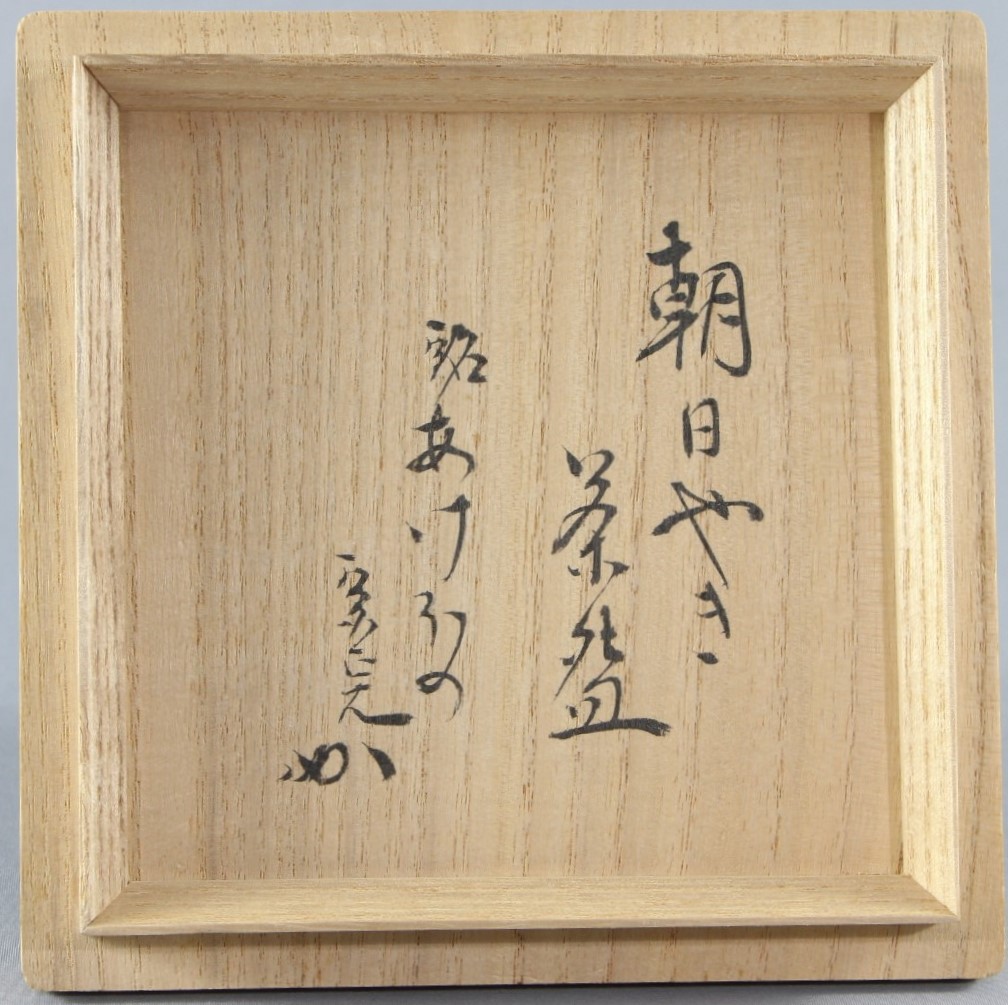 朝日やき
茶盌
銘あけほの